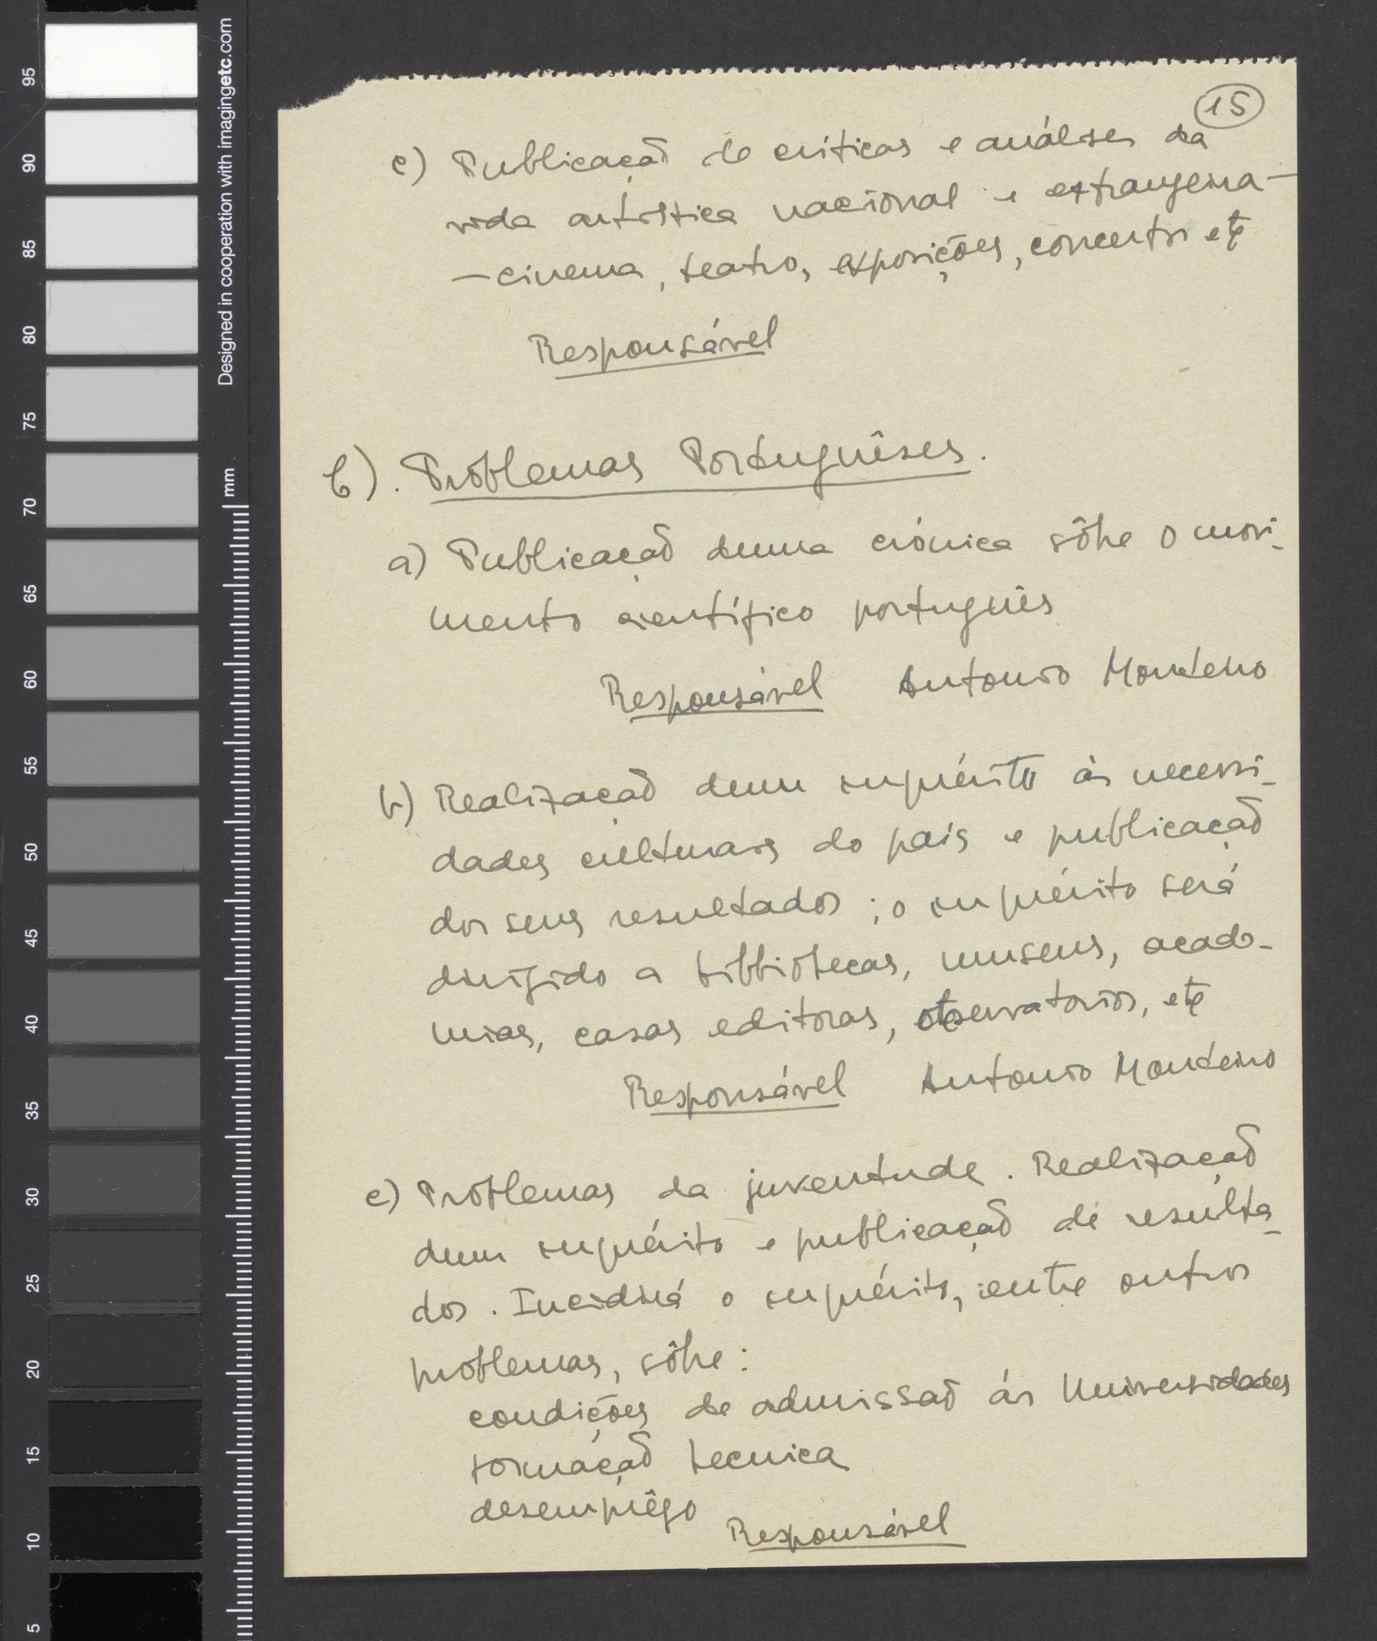 15
c) Publicação de criticas e análises da
vida artistica nacional e estrangeira –
– cinema, teatro, exposições, concertos etc
Responsável
6). Problemas Portuguêses.
a) Publicação duma crónica sôbre o movi-
mento científico português
Responsável Antonio Monteiro
b) Realização dum inquérito às necessi-
dades culturais do pais e publicação
dos seus resultados; o inquérito será
dirigido a bibliotecas, museus, acade-
mias, casas editoras, observatorios, etc
Responsável Antonio Monteiro
c) Problemas da juventude. Realização
dum inquérito e publicação de resulta-
dos. Incidirá o inquérito, entre outros
problemas, sôbre:
condições de admissão ás Universidades
formação tecnica
desemprêgo
Responsável
95
90
85
80
75
70
65
60
55
50
45
40
35
30
25
20
15
10
5
Designed in cooperation with imagingetc.com
mm